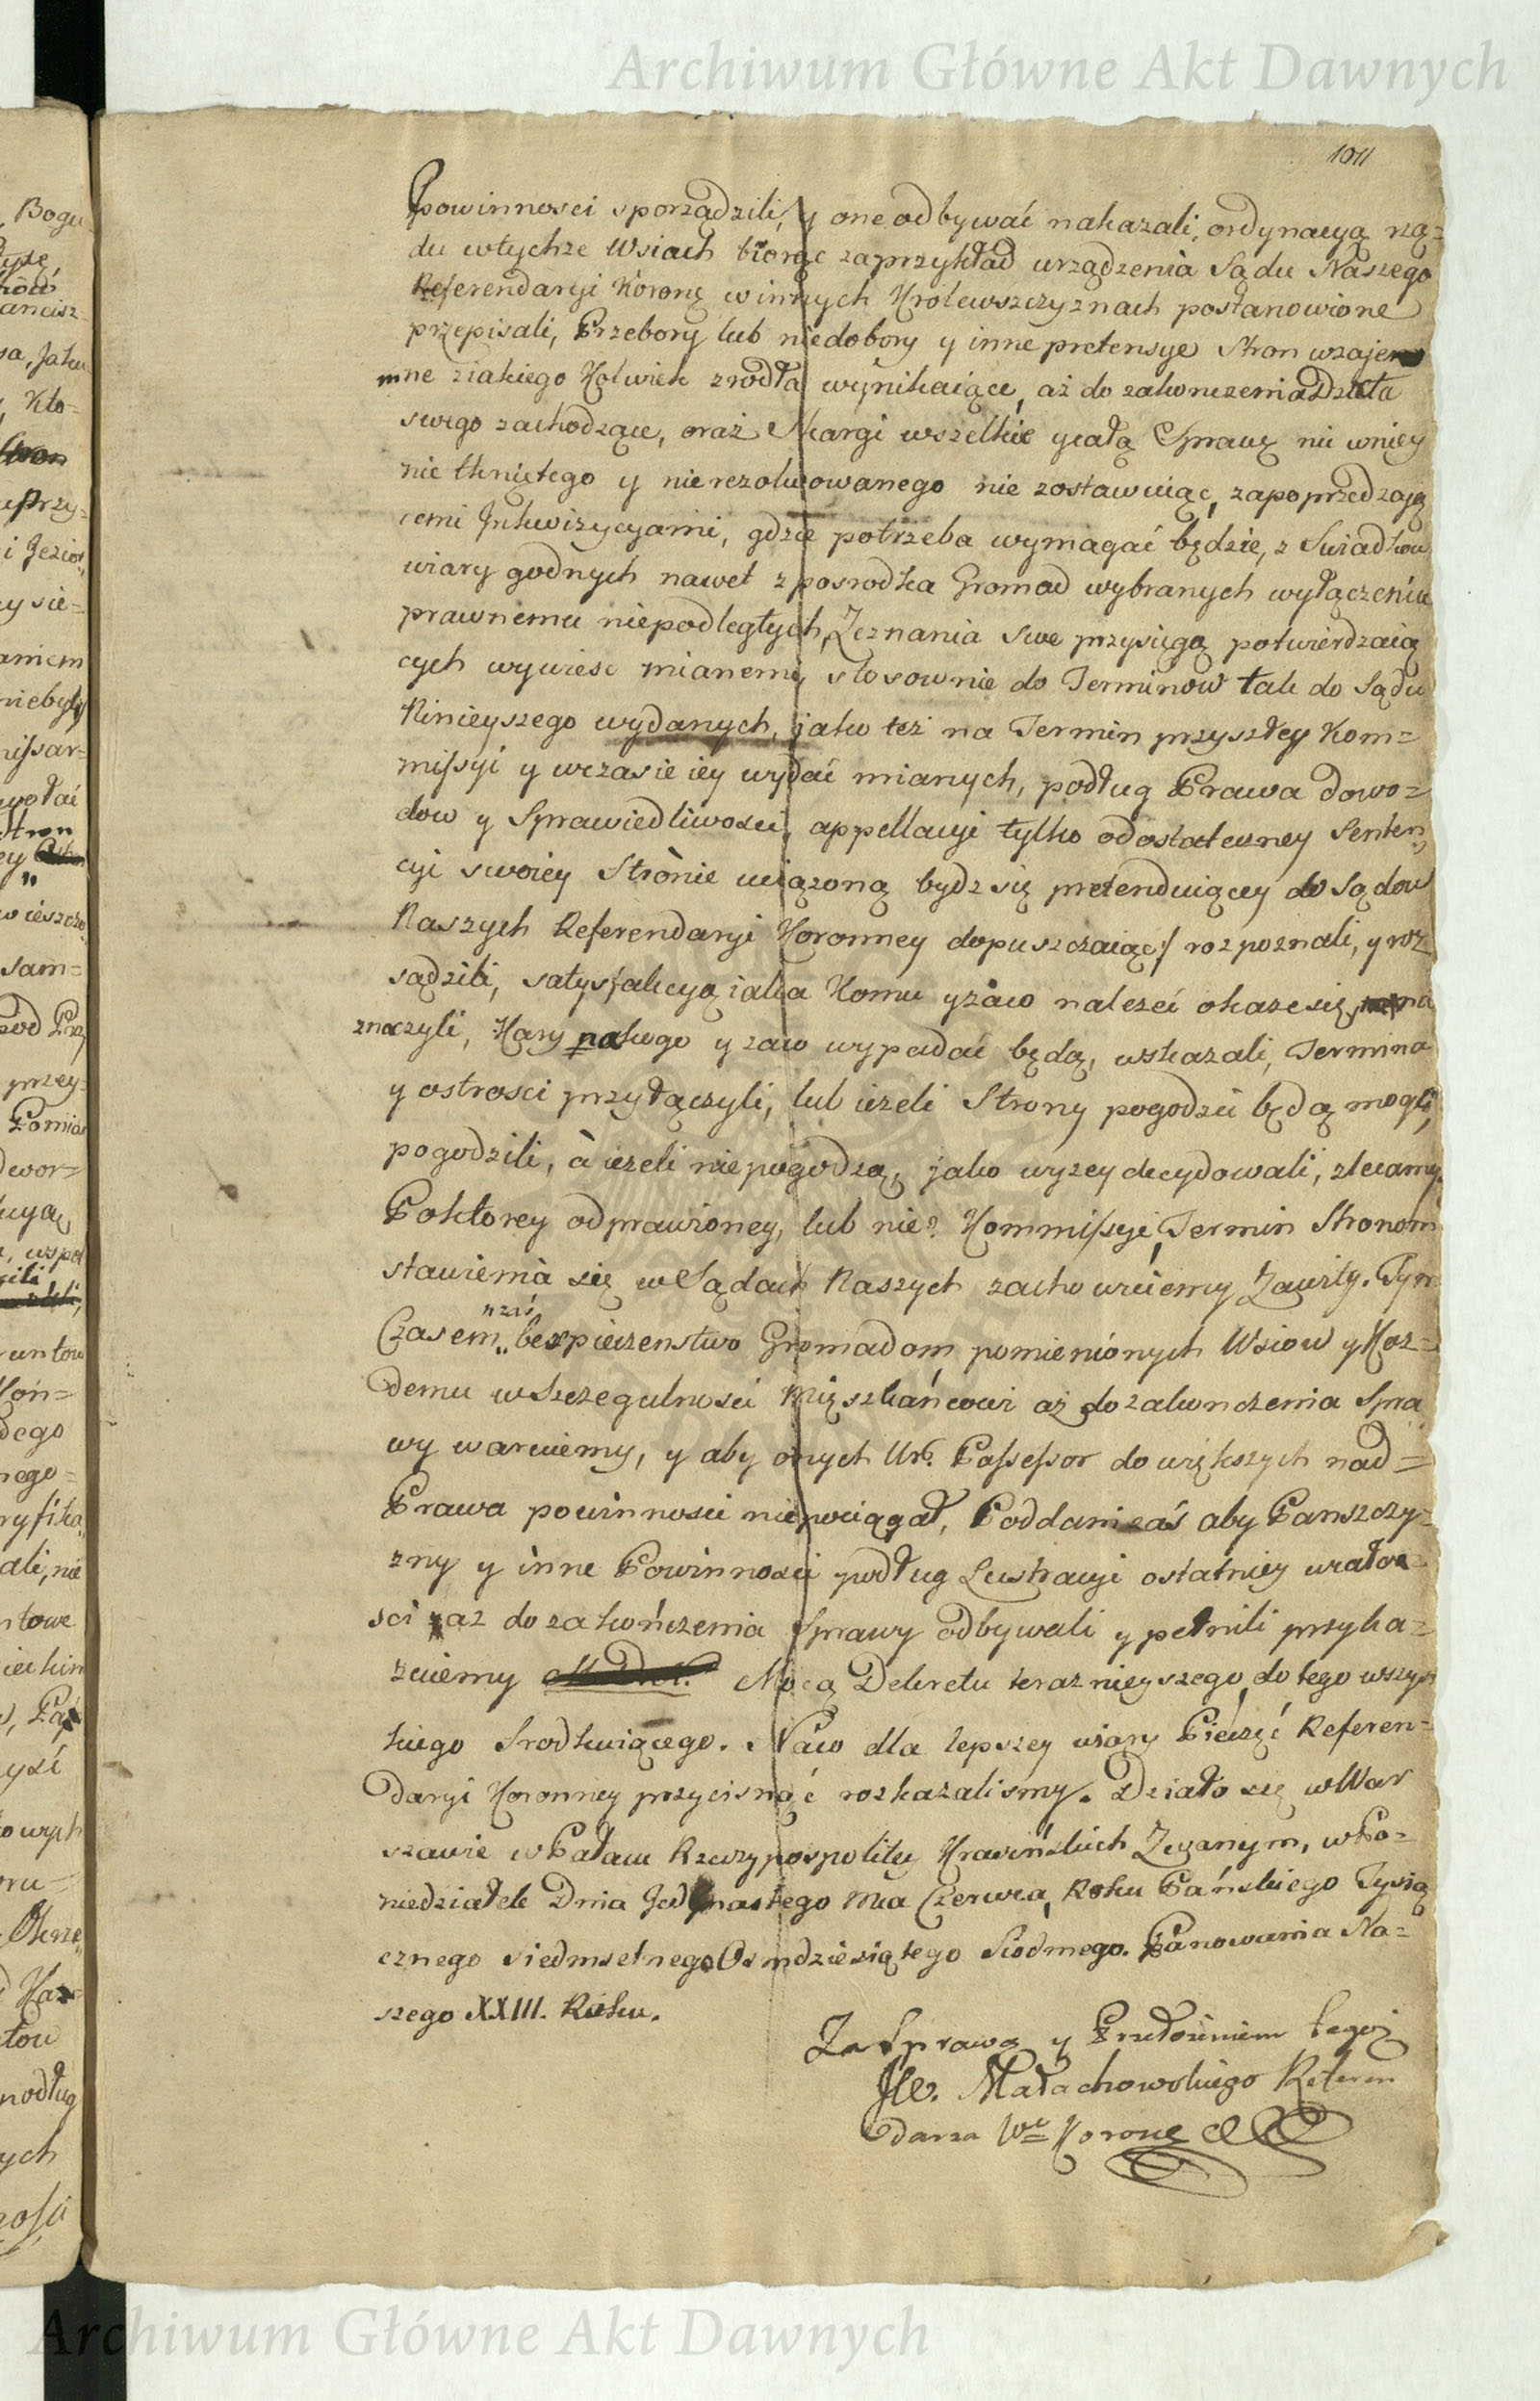 Archiwum Główne Akt Dawnych
1011
powinnosci sporządzili, y one odbywać nakazali, ordynacyą rzą=
du wtychże Wsiach biorąc zaprzykład urządzenia Sądu Naszego
Referendaryi Koronę winnych Krolewszczyznach postanowione
przepisali, Przebory lub niedobory y inne pretensye Stron wzajem
mne ziakiego Kolwiek zrodła wynikaiące, aż do zakonczenia Dzieła
swego zachodzące, oraz Skargi wszelkie ycałą Sprawę nic wniey
nie tkniętego y nierezolwowanego nie zostawuiąc, zapoprzedzają
cemi Inkwizycyami, gdzie potrzeba wymagać będzie, z Swiadkow
wiary godnych nawet zposrodka Gromad wybranych wyłączeniu
prawnemu niepodległych, Zeznania swe przysięgą potwierdzaią
cych wywieśc mianemi, stosownie do Terminow tak do Sądu
Ninieyszego wydanych, jako też na Termin przyszłey Kom=
missyi y wczasie iey wydać mianych, podług Prawa dowo=
dow y Sprawiedliwosci, appellacyi tylko odostateczney Senten
cyi swoiey Stronie uciążoną bydz się pretenduiącey do Sądow
Naszych Referendaryi Koronney dopuszczaiąc/ rozpoznali, y roz
sądzili, satysfakcyą iaka Komu yzaco należeć okaże się, na
znaczyli, Kary nakogo y zaco wypadać będą, wskazali, Termina
y ostrosci przyłączyli, lub ieżeli Strony pogodzić będą mogli,
pogodzili, à ieżeli niepogodzą, jako wyzey decydowali, zlecamy.
Poktorey odprawioney, lub nie? Kommissyi, Termin Stronom
stawienia się w Sądach Naszych zachowuiemy Zawity. Tym
zaś
Czasem bezpieczenstwo Gromadom pomienionych Wsiow y Kaz=
demu wSzczegulnosci Mięszkańcowi aż do zakonczenia Spra
wy waruiemy, y aby onych Ur. Possessor do większych nad=
Prawa powinnosci niepociągał, Poddani zaś aby Panszczy=
zny y inne Powinnosci podług Lustracyi ostatniey wcało
sci aż do zakończenia Sprawy odbywali y pełnili przyka=
zuiemy Mocą Dekretu teraznieyszego do tego wszys
tkiego Srodkuiącego. Naco dla lepszey wiary Pieczęć Referen=
daryi Koronney przycisnąć rozkazalismy. Działo się w War
szawie w Pałacu Rzeczypospolitey Krasińskich Zwanym, w Po=
niedziałek Dnia Jedynastego Mca Czerwca, Roku Pańskiego Tysią
cznego siedmsetnego Osmdziesiątego Siodmego. Panowania Na=
szego XXIII. Roku.
Za Sprawą y Przełożeniem tegoż
JW. Małachowskiego Referen
darza We Koronę
Archiwum Główne Akt Dawnych